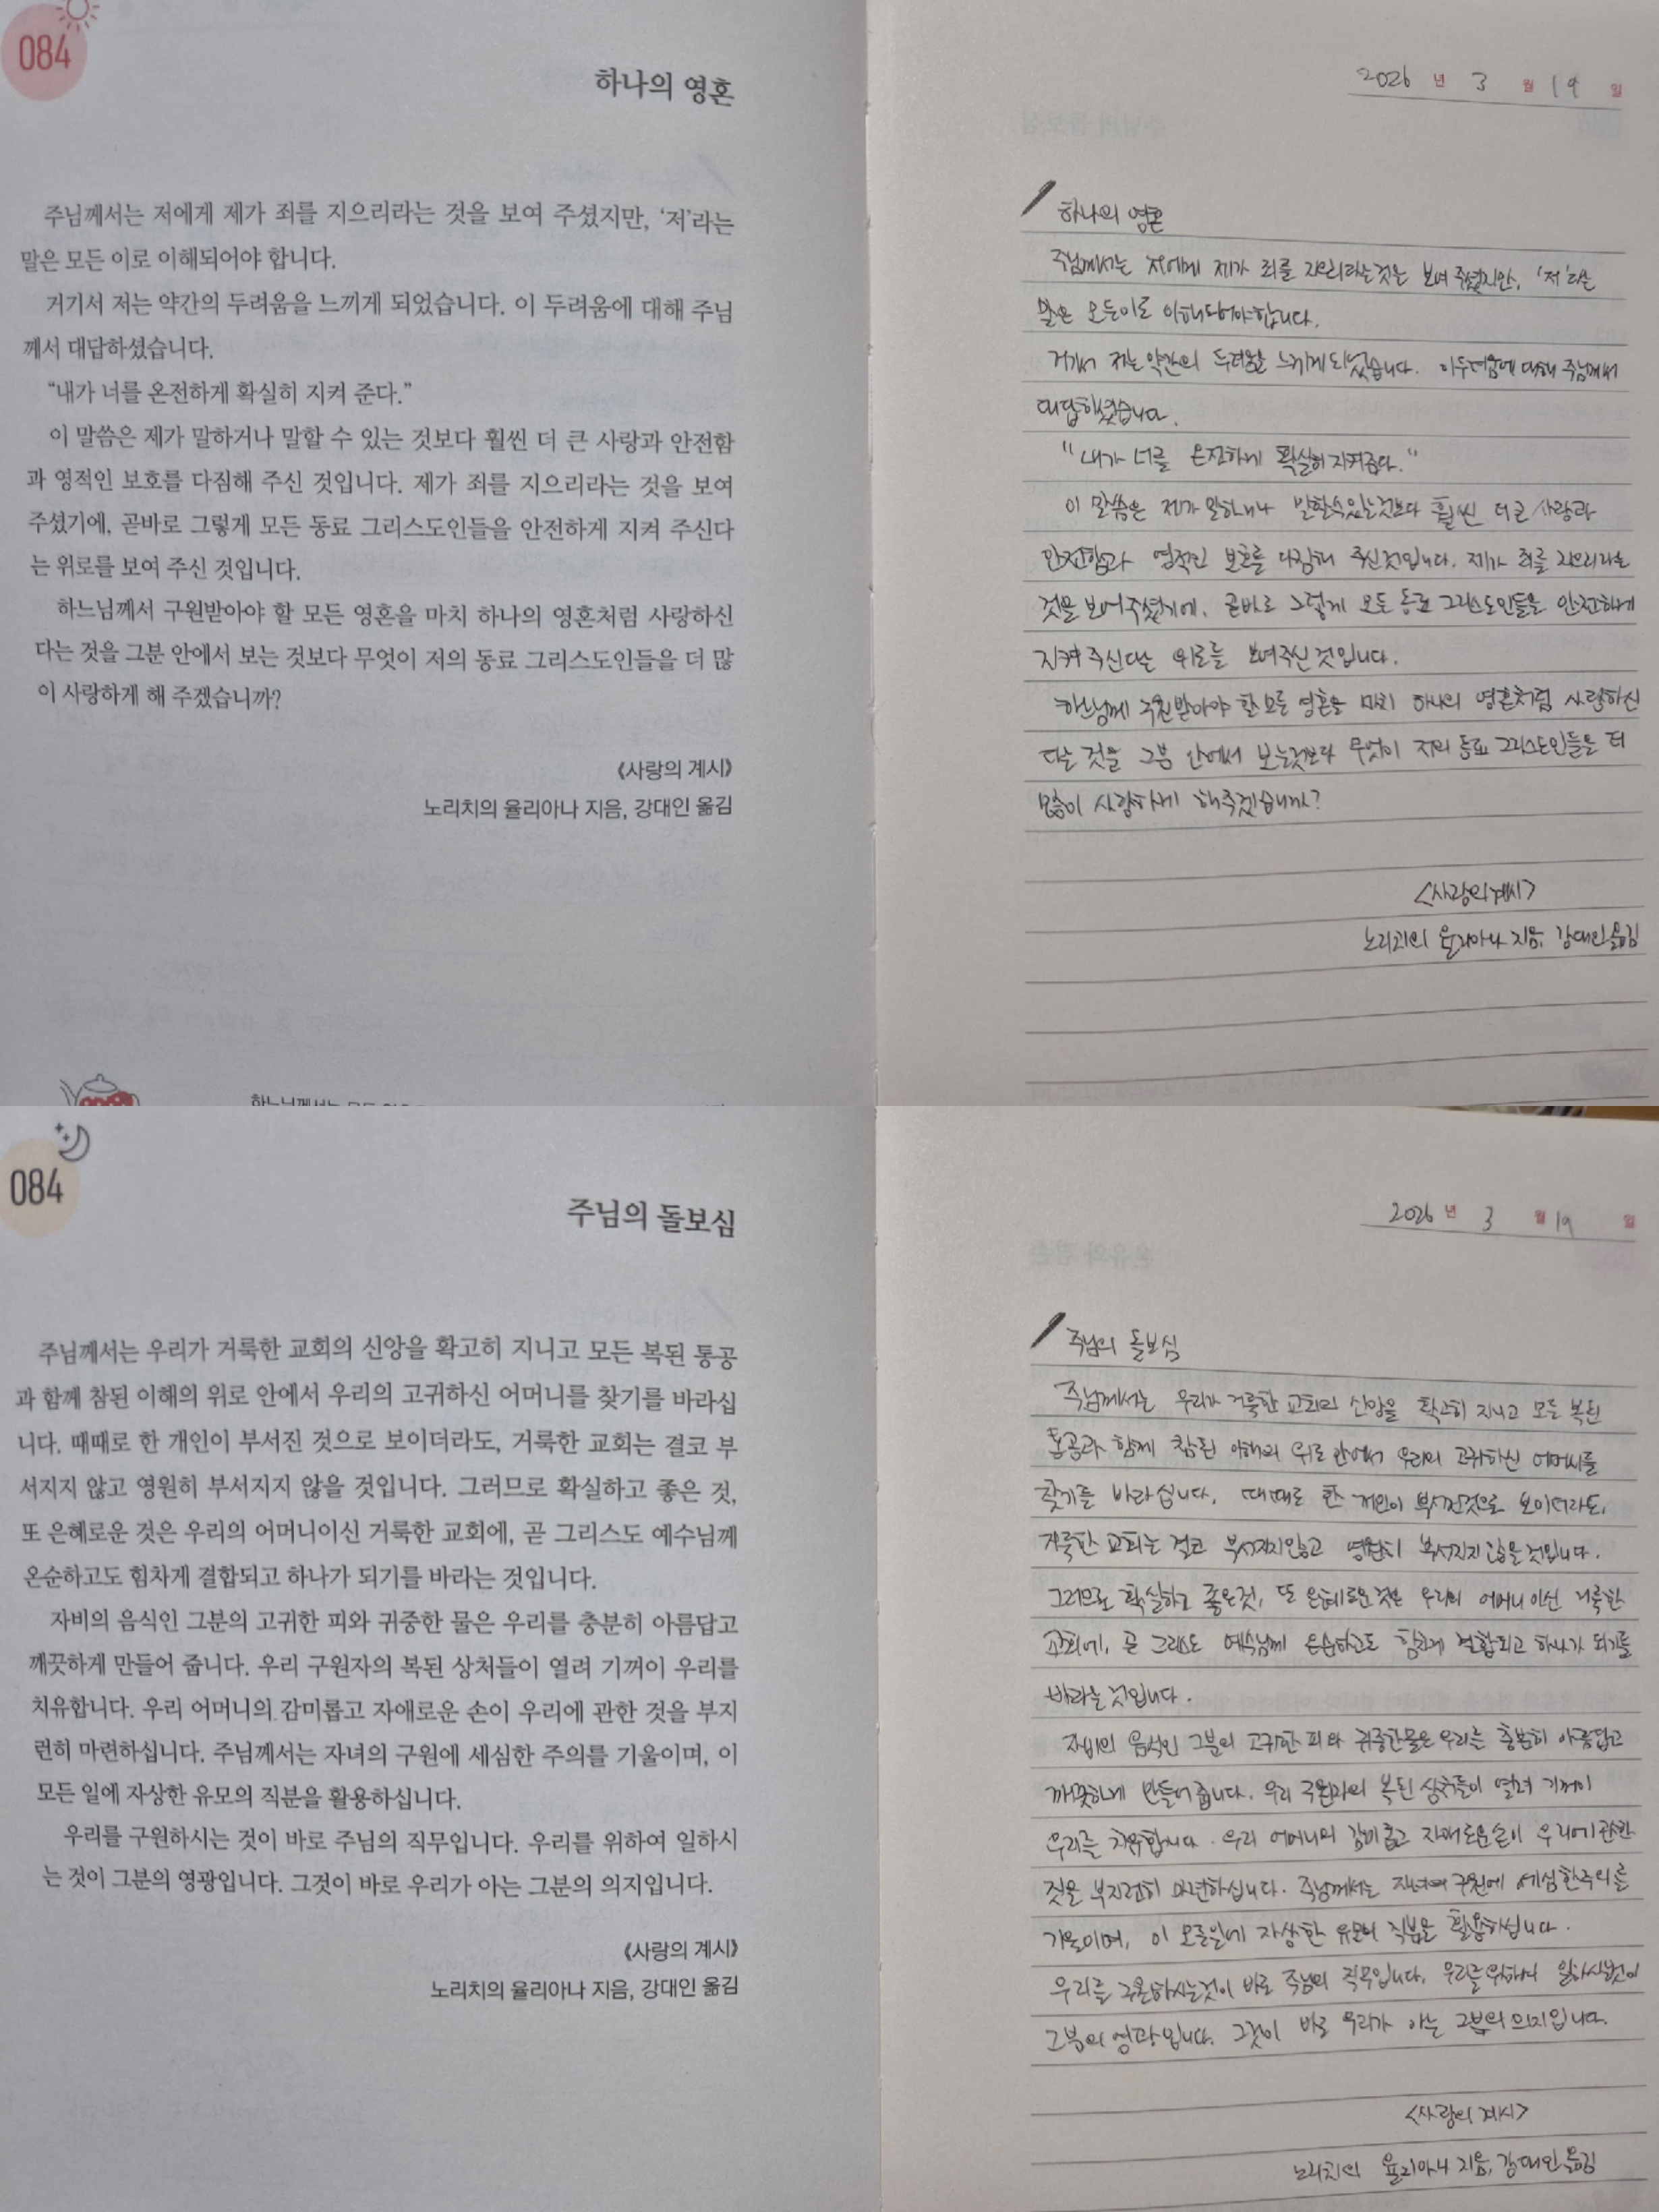 084
하나의 영혼
주님께서는 저에게 제가 죄를 지으리라는 것을 보여 주셨지만, ‘저’라는
말은 모든 이로 이해되어야 합니다.
거기서 저는 약간의 두려움을 느끼게 되었습니다. 이 두려움에 대해 주님
께서 대답하셨습니다.
“내가 너를 온전하게 확실히 지켜 준다.”
이 말씀은 제가 말하거나 말할 수 있는 것보다 훨씬 더 큰 사랑과 안전함
과 영적인 보호를 다짐해 주신 것입니다. 제가 죄를 지으리라는 것을 보여
주셨기에, 곧바로 그렇게 모든 동료 그리스도인들을 안전하게 지켜 주신다
는 위로를 보여 주신 것입니다.
하느님께서 구원받아야 할 모든 영혼을 마치 하나의 영혼처럼 사랑하신
다는 것을 그분 안에서 보는 것보다 무엇이 저의 동료 그리스도인들을 더 많
이 사랑하게 해 주겠습니까?
《사랑의 계시》
노리치의 율리아나 지음, 강대인 옮김
2026 년 3 월 19 일
하나의 영혼
주님께서는 저에게 제가 죄를 지으리라는것을 보여 주셨지만, ‘저’라는
말은 모든이로 이해되어야합니다.
거기서 저는 약간의 두려움을 느끼게되었습니다. 이두려움에 대해 주님께서
대답하셨습니다.
“내가 너를 온전하게 확실히지켜준다.”
이 말씀은 제가 말하거나 말할수있는것보다 훨씬 더큰 사랑과
안전함과 영적인 보호를 다짐해 주신것입니다. 제가 죄를 지으리라는
것을 보여주셨기에, 곧바로 그렇게 모든 동료 그리스도인들을 안전하게
지켜 주신다는 위로를 보여주신 것입니다.
하느님께 구원받아야 할모든 영혼을 마치 하나의 영혼처럼 사랑하신
다는 것을 그분 안에서 보는것보다 무엇이 저의 동료 그리스도인들을 더
많이 사랑하게 해주겠습니까?
<사랑의계시>
노리치의 율리아나 지음, 강대인옮김
084
주님의 돌보심
주님께서는 우리가 거룩한 교회의 신앙을 확고히 지니고 모든 복된 통공
과 함께 참된 이해의 위로 안에서 우리의 고귀하신 어머니를 찾기를 바라십
니다. 때때로 한 개인이 부서진 것으로 보이더라도, 거룩한 교회는 결코 부
서지지 않고 영원히 부서지지 않을 것입니다. 그러므로 확실하고 좋은 것,
또 은혜로운 것은 우리의 어머니이신 거룩한 교회에, 곧 그리스도 예수님께
온순하고도 힘차게 결합되고 하나가 되기를 바라는 것입니다.
자비의 음식인 그분의 고귀한 피와 귀중한 물은 우리를 충분히 아름답고
깨끗하게 만들어 줍니다. 우리 구원자의 복된 상처들이 열려 기꺼이 우리를
치유합니다. 우리 어머니의 감미롭고 자애로운 손이 우리에 관한 것을 부지
런히 마련하십니다. 주님께서는 자녀의 구원에 세심한 주의를 기울이며, 이
모든 일에 자상한 유모의 직분을 활용하십니다.
우리를 구원하시는 것이 바로 주님의 직무입니다. 우리를 위하여 일하시
는 것이 그분의 영광입니다. 그것이 바로 우리가 아는 그분의 의지입니다.
《사랑의 계시》
노리치의 율리아나 지음, 강대인 옮김
2026 년 3 월 19 일
주님의 돌보심
주님께서는 우리가 거룩한 교회의 신앙을 확고히 지니고 모든 복된
통공과 함께 참된 이해의 위로 안에서 우리의 고귀하신 어머니를
찾기를 바라십니다. 때때로 한 개인이 부서진것으로 보이더라도,
거룩한 교회는 결코 부서지지않고 영원히 부서지지 않을것입니다.
그러므로 확실하고 좋은것, 또 은혜로운것은 우리의 어머니이신 거룩한
교회에, 곧 그리스도 예수님께 온순하고도 힘차게 결합되고 하나가 되기를
바라는것입니다.
자비의 음식인 그분의 고귀한 피와 귀중한물은 우리를 충분히 아름답고
깨끗하게 만들어 줍니다. 우리 구원자의 복된 상처들이 열려 기꺼이
우리를 치유합니다. 우리 어머니의 감미롭고 자애로운손이 우리에관한
것을 부지런히 마련하십니다. 주님께서는 자녀의 구원에 세심한주의를
기울이며, 이 모든일에 자상한 유모의 직분을 활용하십니다.
우리를 구원하시는것이 바로 주님의 직무입니다. 우리를위하여 일하시는것이
그분의 영광입니다. 그것이 바로 우리가 아는 그분의 의지입니다.
<사랑의 계시>
노리치의 율리아나 지음, 강대인옮김